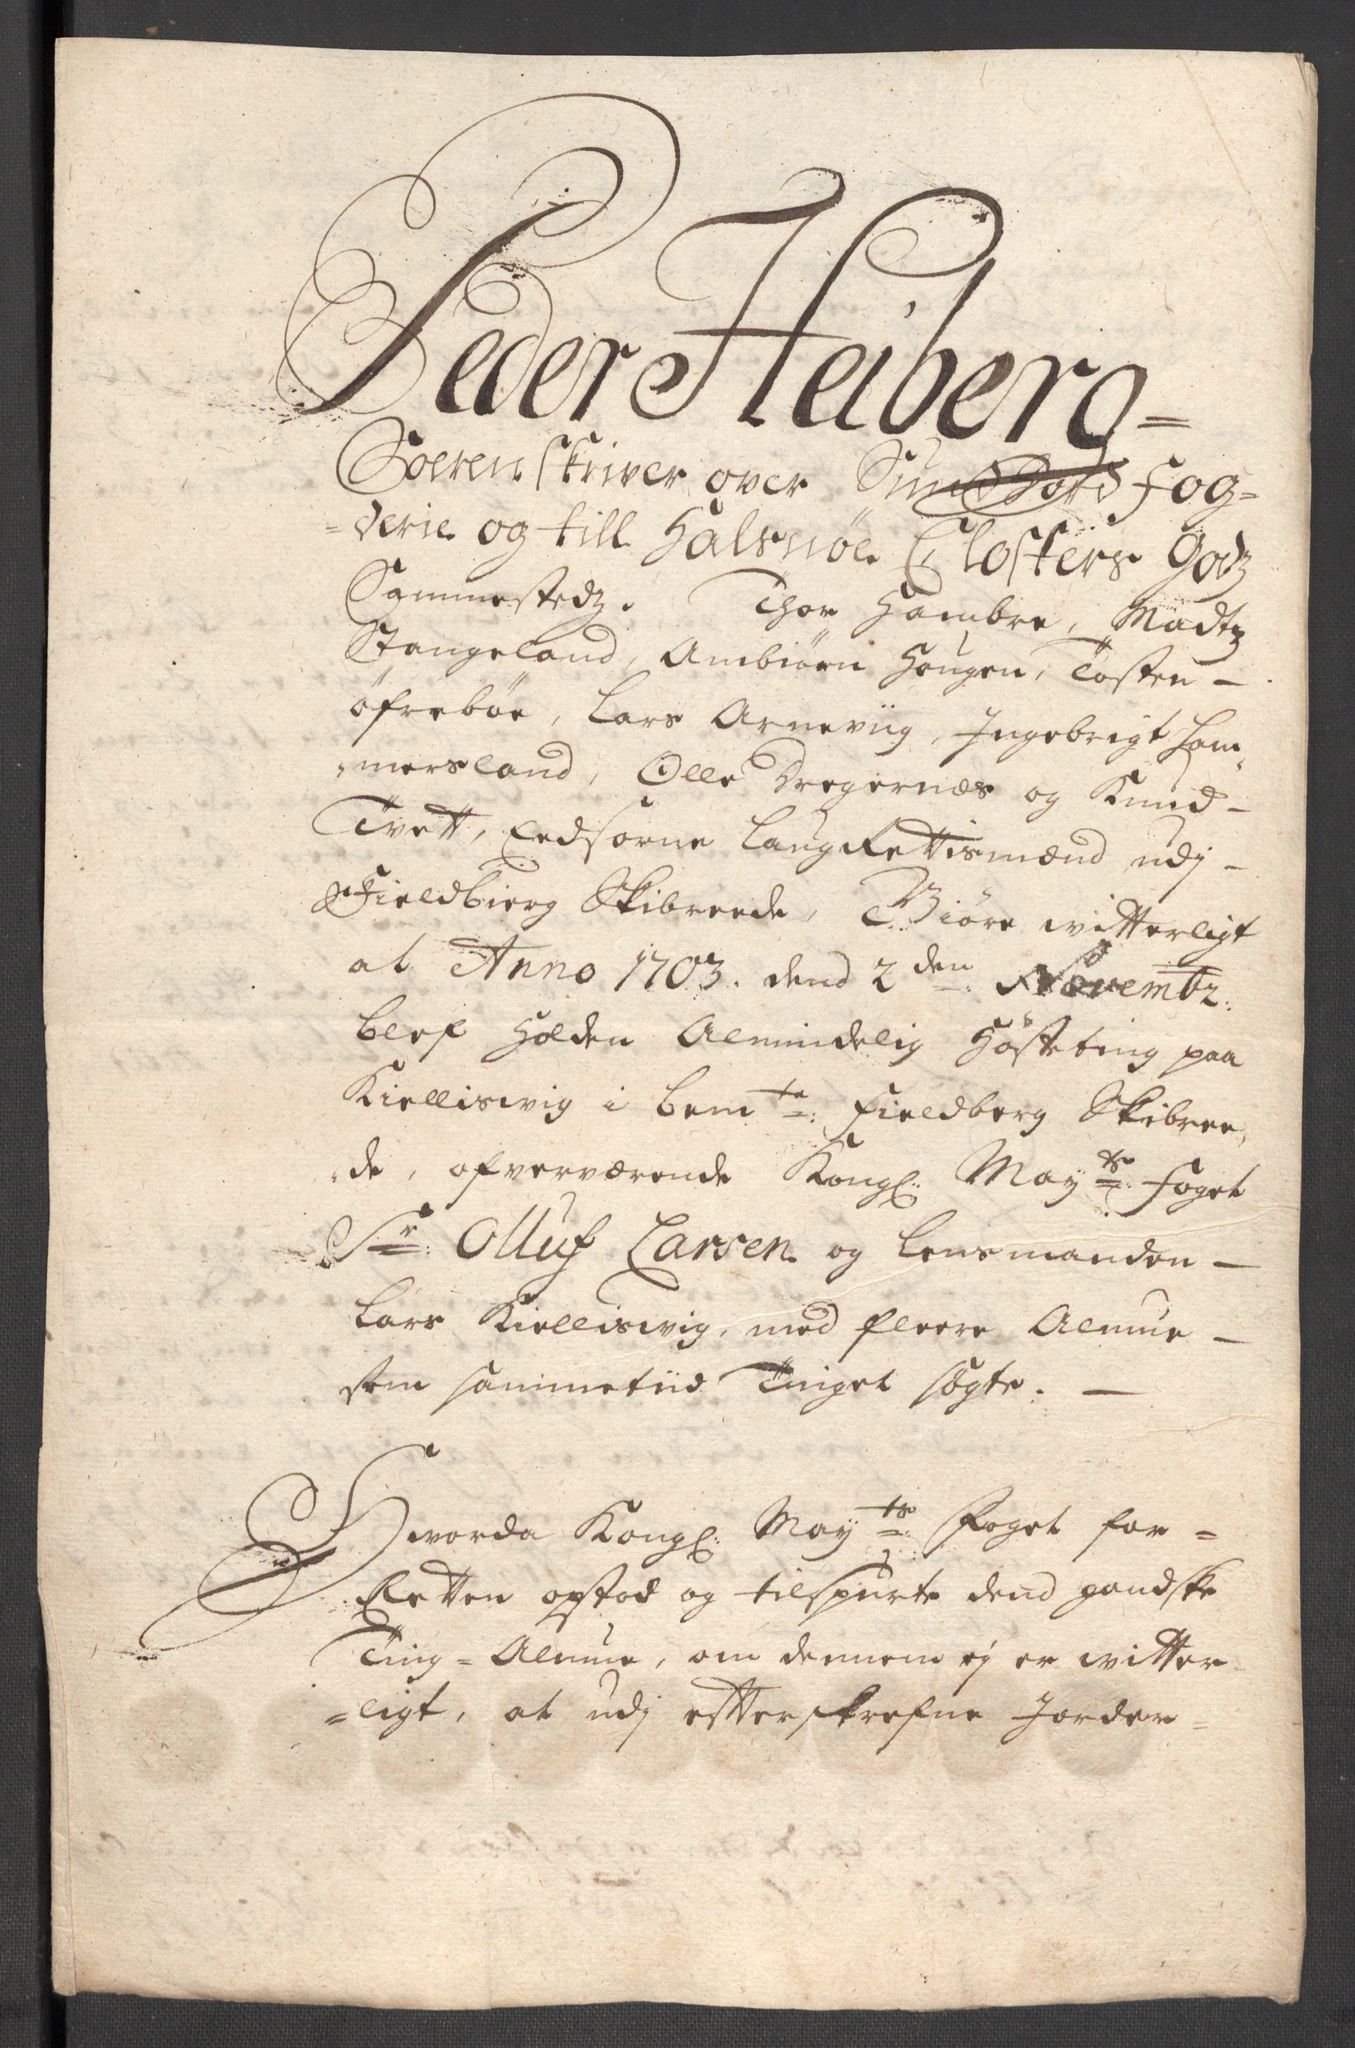 Peder Heiberg=
Soeren skriver over Sundhord fog=
=derie og till Halsnöe Closters Godz
Sammestedz. Thor Hambre, Madtz
Stangeland, Ambiörn Hougen, Tosten –
öfrebøe, Lars Arneviig, Ingebrigt Ham„
„mersland, Olle Dregernæs og Knud –
Tvett, Eedsorne LaugRettismænd udj –
Fieldbierg Skibreede, Giöre witterligt
at Anno 1703. dend 2den Novembr:
blef Holden Almindelig Höste ting paa
Kielliswig i bemte: Fieldberg Skibree„
„de, ofverværende Kongl: Mayts: foget
Sr: Olluf Larsen og Lensmanden –
Lars Kielliswig, med fleere Almue –
som sammetiid Tinget søgte. –
Hvorda Kongl: Mayts: Foget for =
Retten opstod og tilspurte dend gandske
Ting=Almue, om dennem ej er witter=
=ligt, at udj efterskrefne Jorder=